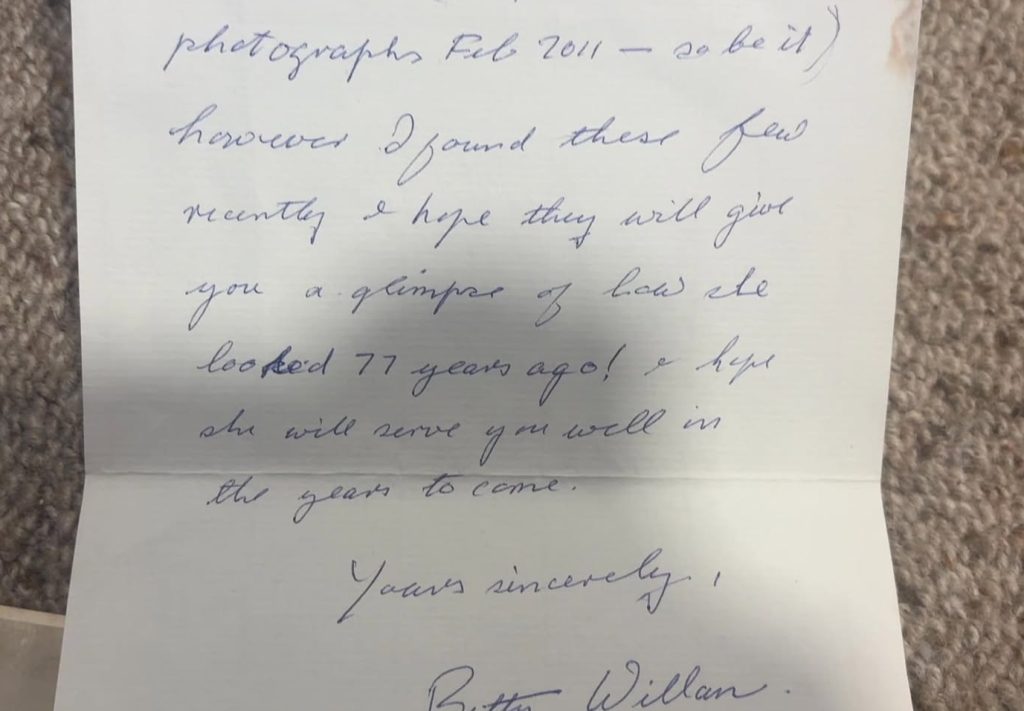 photographs Feb 2011 — so be it)
however I found these few
recently & hope they will give
you a glimpse of how she
looked 77 years ago! & hope
she will serve you well in
the years to come.
Yours sincerely,
Betty Willan.